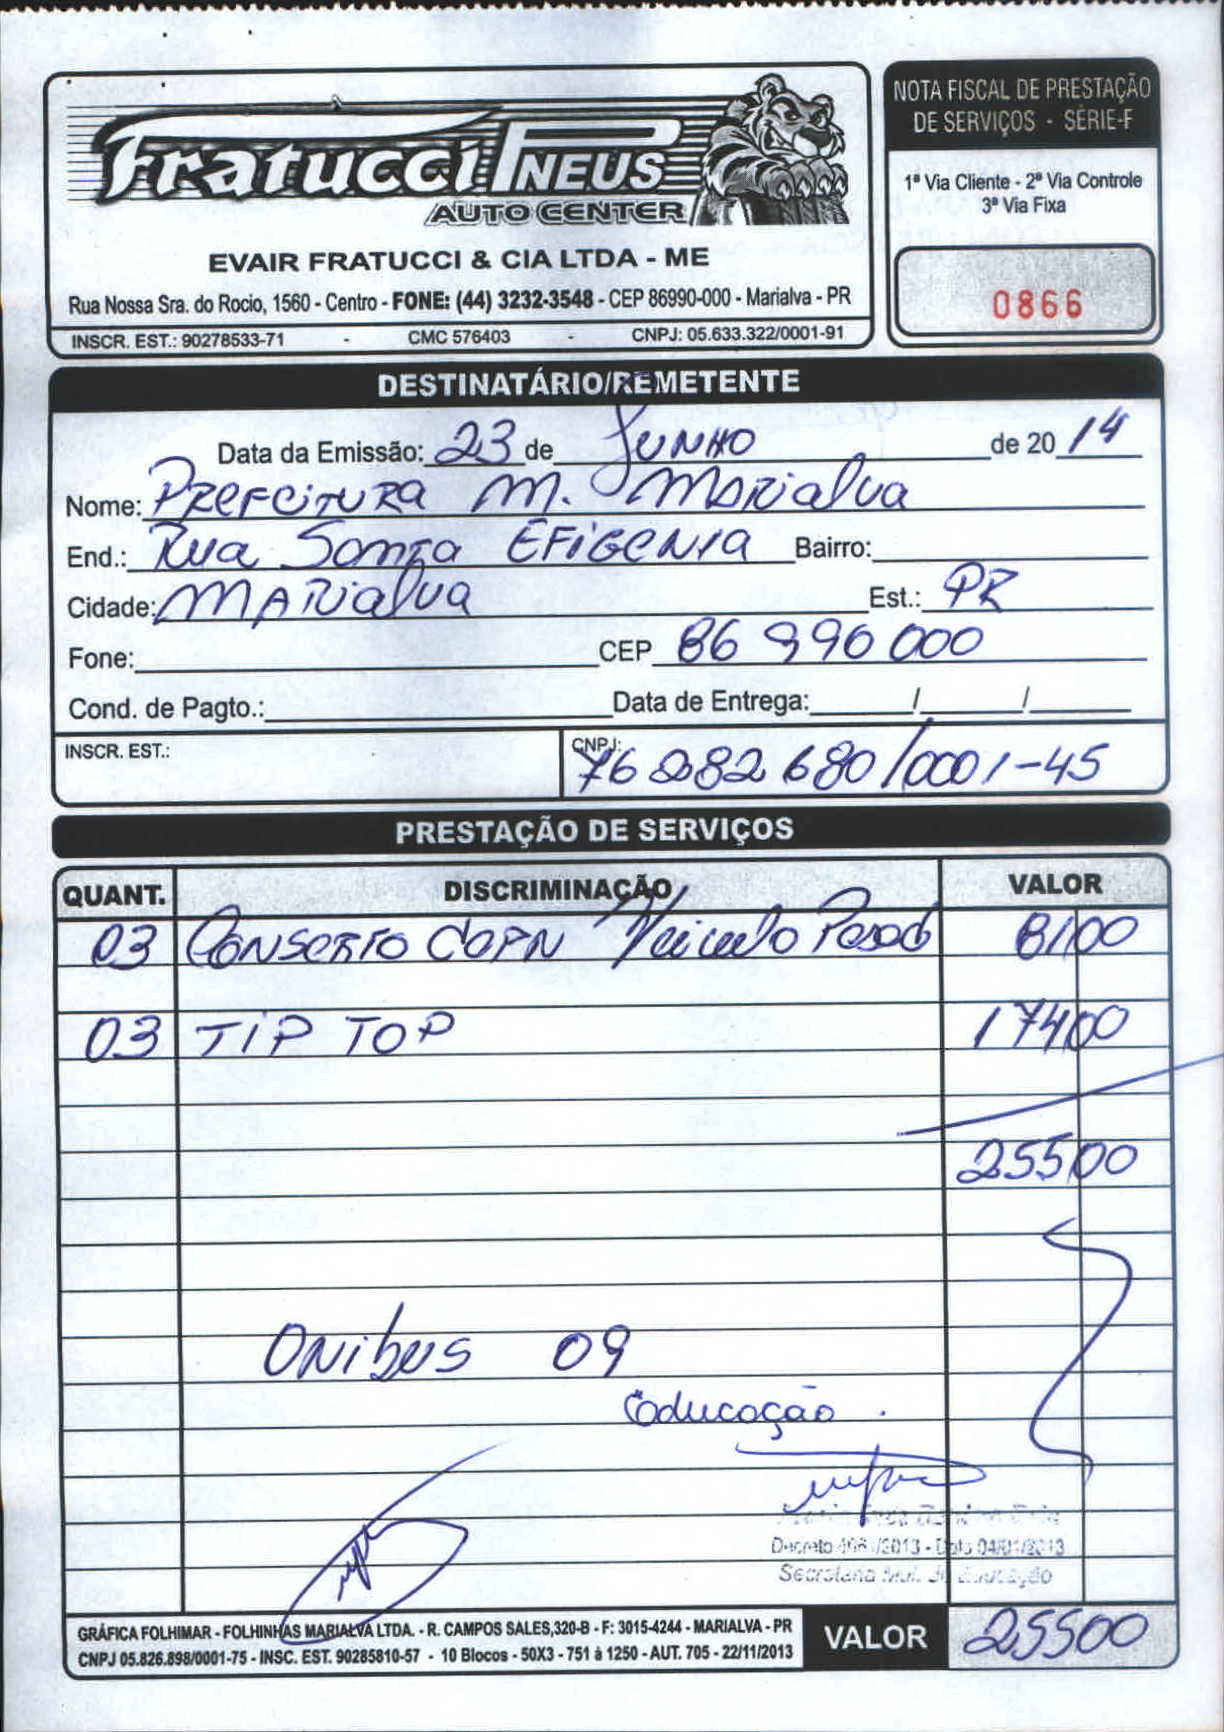 Fratucci PNEUS
AUTO CENTER
EVAIR FRATUCCI & CIA LTDA - ME
Rua Nossa Sra. do Rocio, 1560 - Centro - FONE: (44) 3232-3548 - CEP 86990-000 - Marialva - PR
INSCR. EST.: 90278533-71 - CMC 576403 - CNPJ: 05.633.322/0001-91
NOTA FISCAL DE PRESTAÇÃO
DE SERVIÇOS - SÉRIE-F
1ª Via Cliente - 2ª Via Controle
3ª Via Fixa
0866
DESTINATÁRIO/REMETENTE
Data da Emissão: 23 de JUNHO de 2014
Nome: PREFEITURA M. MARIALVA
End.: Rua Santa EFIGENIA Bairro:
Cidade: MARIALVA Est.: PR
Fone: CEP 86 990 000
Cond. de Pagto.: Data de Entrega: / /
INSCR. EST.: CNPJ: 76 282 680/0001-45
PRESTAÇÃO DE SERVIÇOS
QUANT. DISCRIMINAÇÃO VALOR
03 CONSERTO Veiculo Pesado 81 00
03 TIP TOP 174 00
255 00
ONibus 09
Educação.
Decreto /2013 - Data 04/01/2013
Secretaria Mul. de Educação
GRÁFICA FOLHIMAR - FOLHINHAS MARIALVA LTDA. - R. CAMPOS SALES,320-B - F: 3015-4244 - MARIALVA - PR
CNPJ 05.826.898/0001-75 - INSC. EST. 90285810-57 - 10 Blocos - 50X3 - 751 à 1250 - AUT. 705 - 22/11/2013
VALOR 255 00